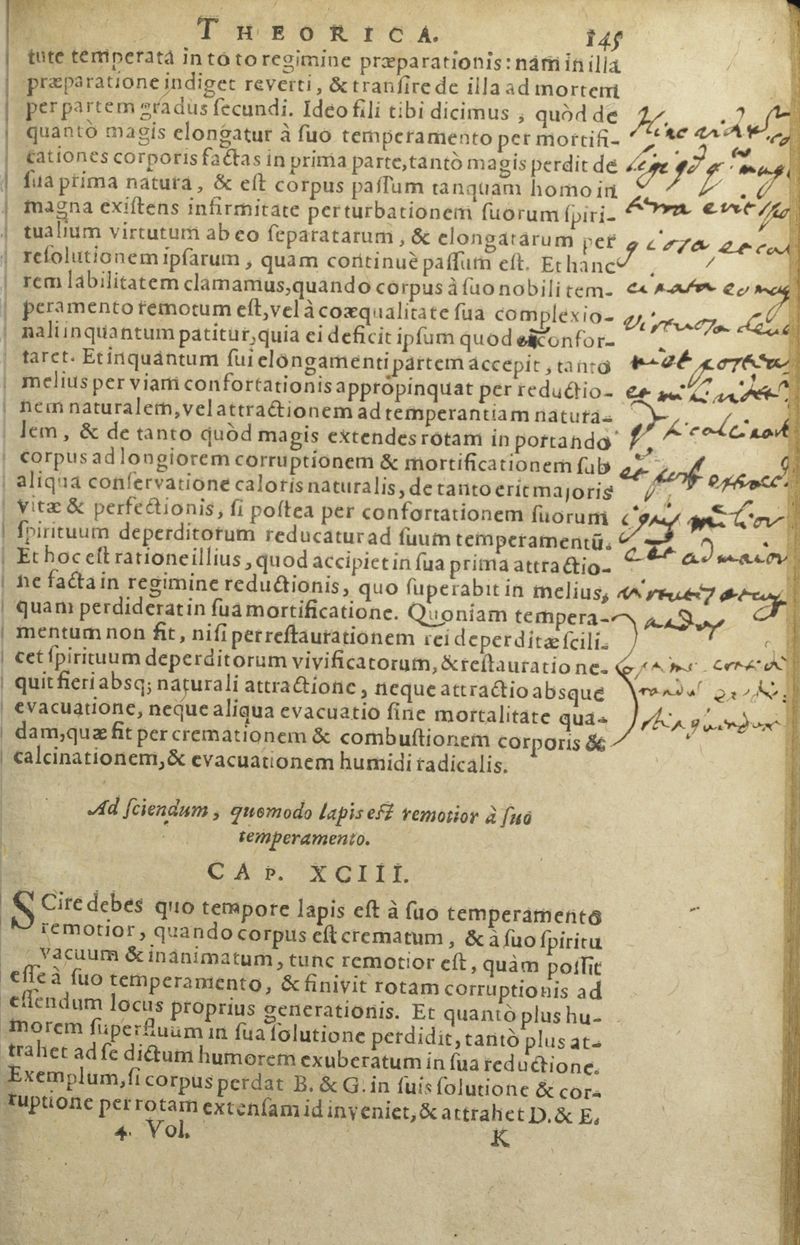 THEORICA. 145
tute temperata in to to regimine præparationis: nám in illa
præparatione indiget reverti, & tranſire de illa ad mortem
per partem gradus ſecundi. Ideo fili tibi dicimus, quòd de
quanto magis elongatur à ſuo temperamento per mortifi-
cationes corporis factas in prima parte, tantò magis perdit de
ſua prima natura, & eſt corpus paſſum tanquam homo in
magna exiſtens infirmitate perturbationem ſuorum ſpiri-
tualium virtutum ab eo ſeparatarum, & elongatarum per
reſolutionem ipſarum, quam continuè paſſum eſt. Et hanc
rem labilitatem clamamus, quando corpus à ſuo nobili tem-
peramento remotum eſt, vel à coæqualitate ſua complexio-
nali inquantum patitur, quia ei deficit ipſum quod confor-
taret. Et inquantum ſui elongamenti partem accepit, tanto
melius per viam confortationis appropinquat per reductio-
nem naturalem, vel attractionem ad temperantiam natura-
lem, & de tanto quòd magis extendes rotam in portando
corpus ad longiorem corruptionem & mortificationem ſub
aliqua conſervatione caloris naturalis, de tanto erit majoris
vitæ & perfectionis, ſi poſtea per confortationem ſuorum
ſpirituum deperditorum reducatur ad ſuum temperamentū.
Et hoc eſt ratione illius, quod accipiet in ſua prima attractio-
ne facta in regimine reductionis, quo ſuperabit in melius,
quam perdiderat in ſua mortificatione. Quoniam tempera-
mentum non fit, niſi per reſtaurationem rei deperditæ ſcili-
cet ſpirituum deperditorum vivificatorum, & reſtauratio ne-
quit fieri absq; naturali attractione, neque attractio absque
evacuatione, neque aliqua evacuatio ſine mortalitate qua-
dam, quæ fit per cremationem & combuſtionem corporis &
calcinationem, & evacuationem humidi radicalis.
Ad ſciendum, quomodo lapis eſt remotior à ſuo
temperamento.
CAP. XCIII.
SCire debes quo tempore lapis eſt à ſuo temperamento
remotior, quando corpus eſt crematum, & à ſuo ſpiritu
vacuum & inanimatum, tunc remotior eſt, quàm poſſit
eſſe à ſuo temperamento, & finivit rotam corruptionis ad
eſſendum locus proprius generationis. Et quantò plus hu-
morem ſuperfluum in ſua ſolutione perdidit, tantò plus at-
trahet ad ſe dictum humorem exuberatum in ſua reductione.
Exemplum, ſi corpus perdat B. & G. in ſuis ſolutione & cor-
ruptione per rotam extenſam id inveniet, & attrahet D. & E.
4. Vol. K